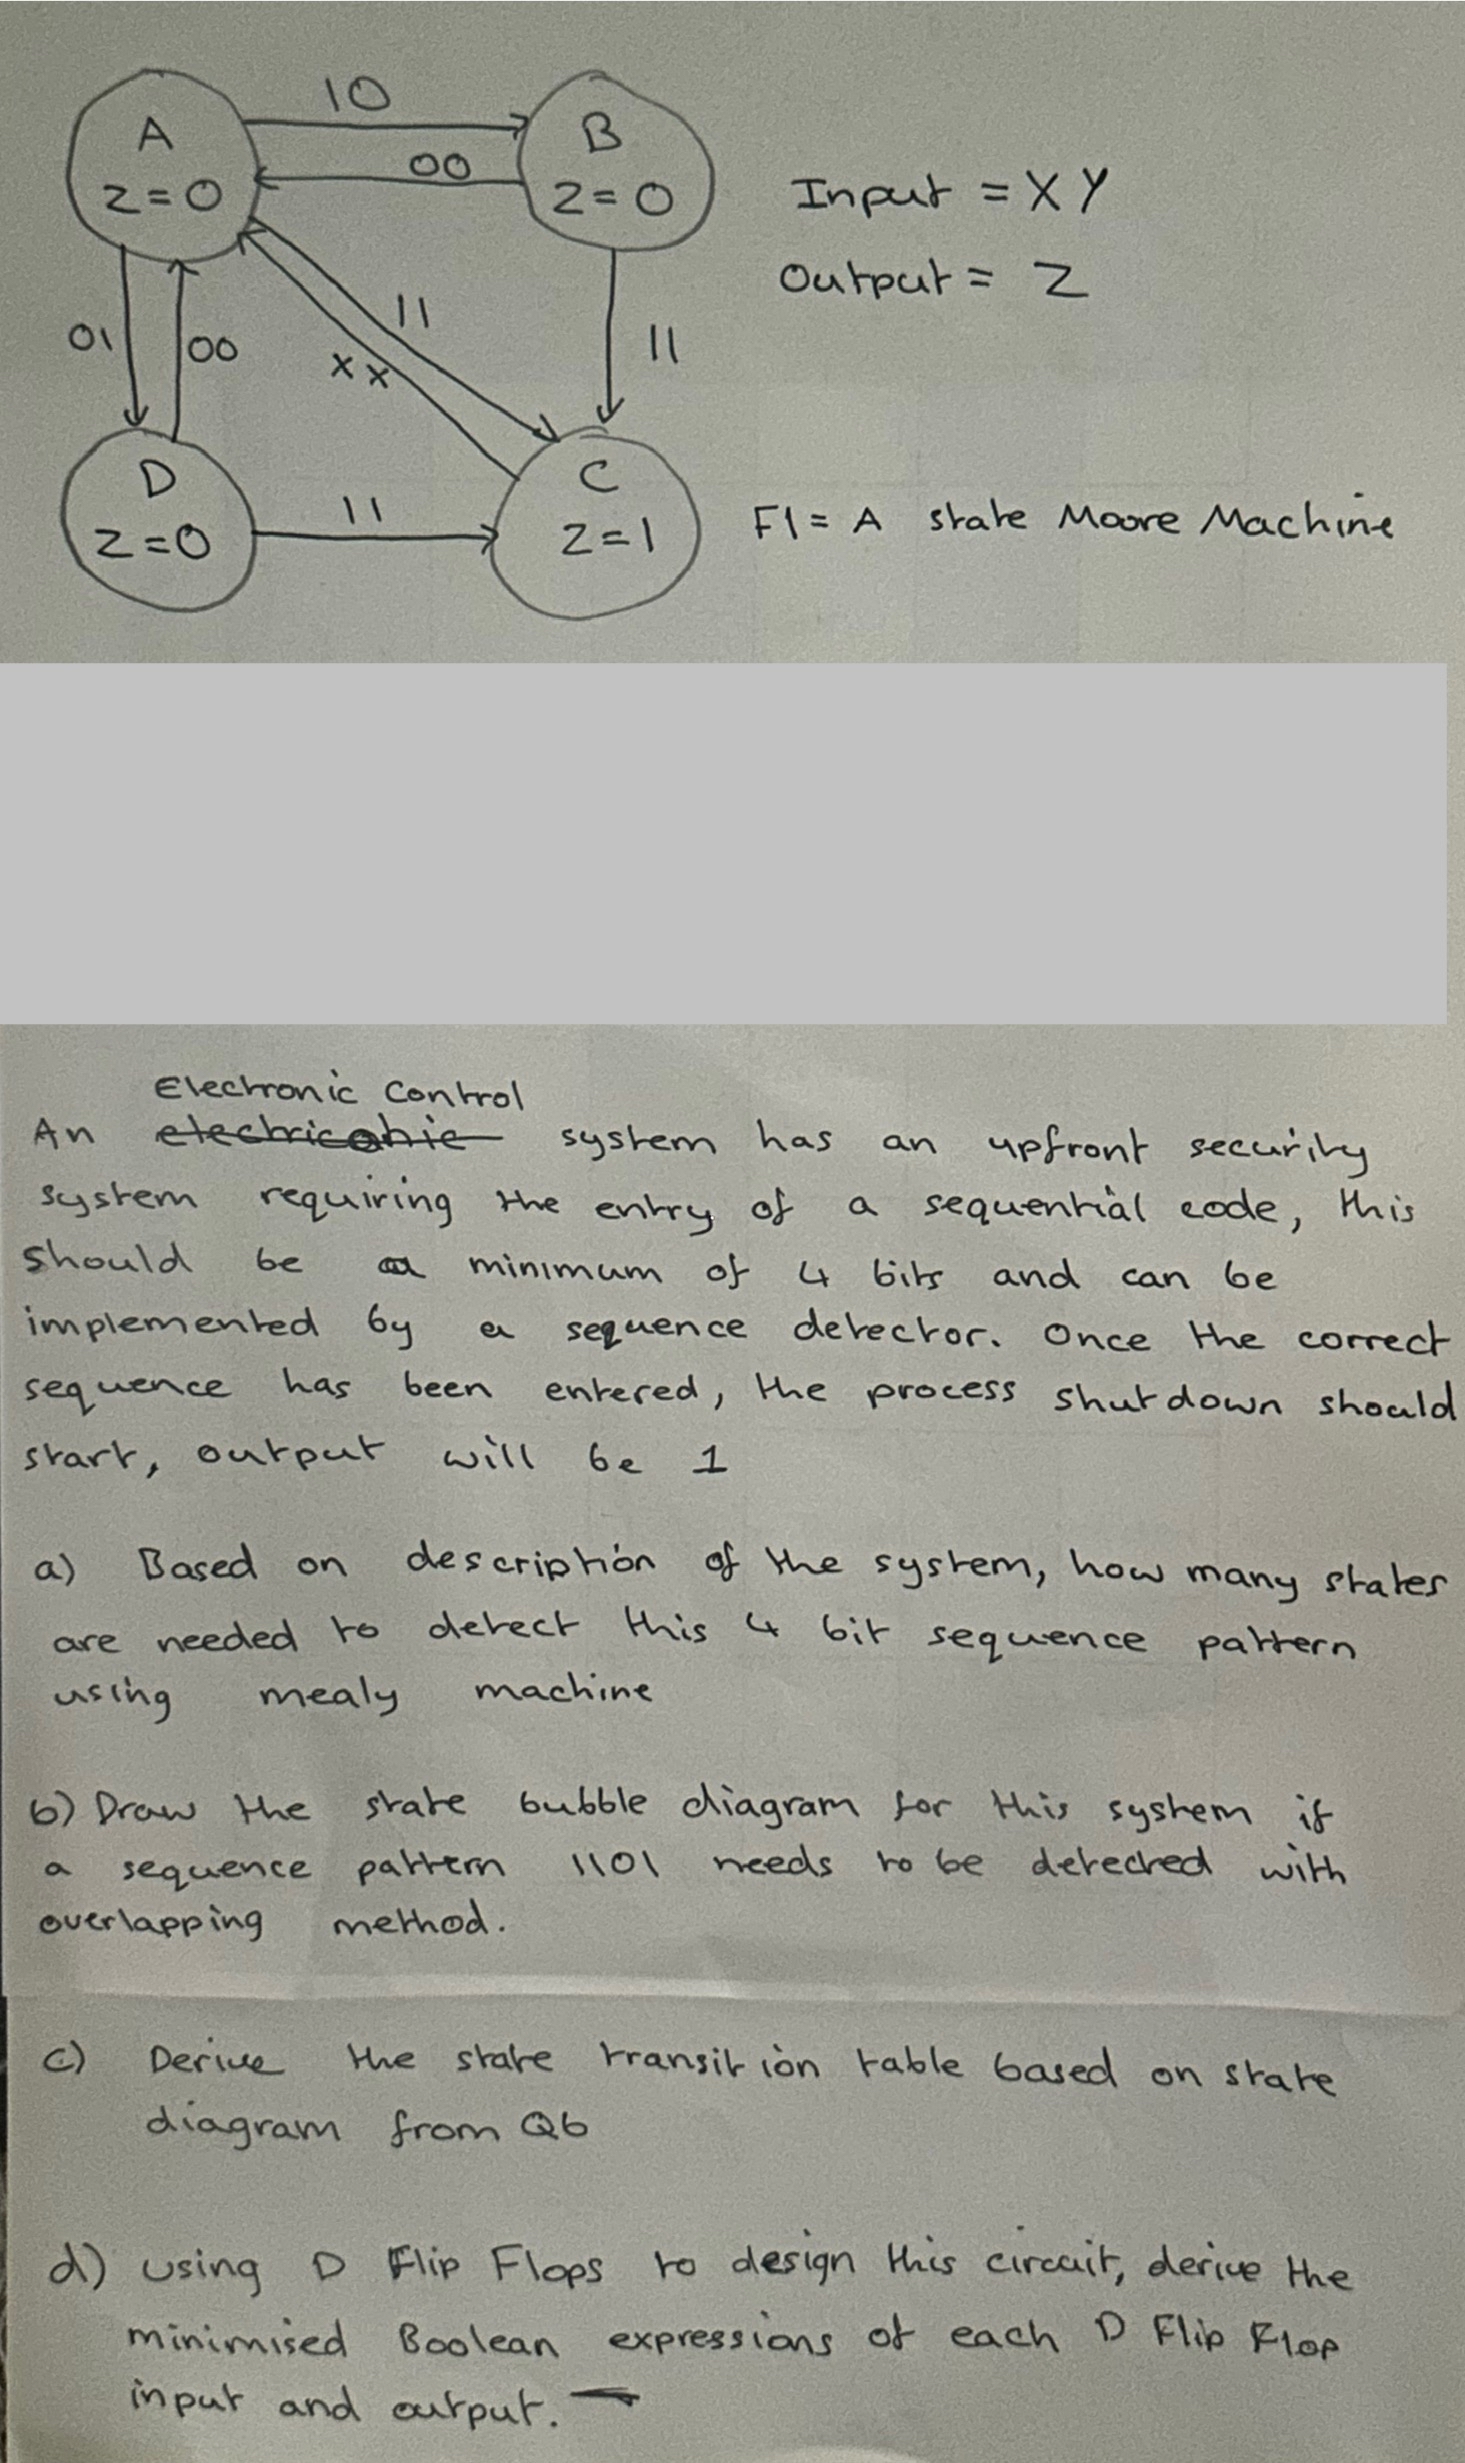 10
A
Z=0
00
B
Z=0
Input = X Y
Output = Z
01
00
11
xx
11
D
Z=0
11
C
Z=1
F1 = A state Moore Machine
Electronic Control
An electricahic system has an upfront security
system requiring the entry of a sequential code, this
should be a minimum of 4 bits and can be
implemented by a sequence detector. Once the correct
sequence has been entered, the process shutdown should
start, output will be 1
a) Based on description of the system, how many states
are needed to detect this 4 bit sequence pattern
using mealy machine
b) Draw the state bubble diagram for this system if
a sequence pattern 1101 needs to be detected with
overlapping method.
c) Derive the state transition table based on state
diagram from Qb
d) Using D Flip Flops to design this circuit, derive the
minimised Boolean expressions of each D Flip Flop
input and output.